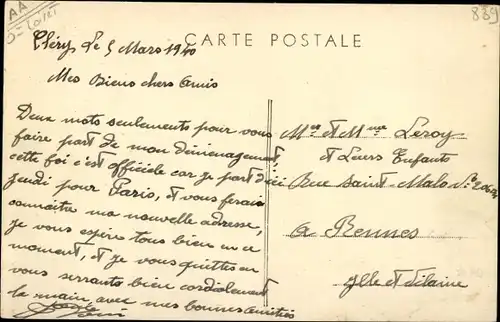 AA
839
Cléry Le 5 Mars 1940
CARTE POSTALE
Mes Biens chers Amis
Deux mots seulements pour vous
faire part de mon déménagement,
cette foi c'est officiele car je part d'ici
jeudi pour Paris, et vous ferais
connaitre ma nouvelle adresse,
je vous espère tous bien en ce
moment, et je vous quittes en
vous serrants bien cordialement
la main avec mes bonnes amitiés
Mr et Mme Leroy
et Leurs Enfants
Rue Saint-Malo No
a Rennes
Ille et Vilaine